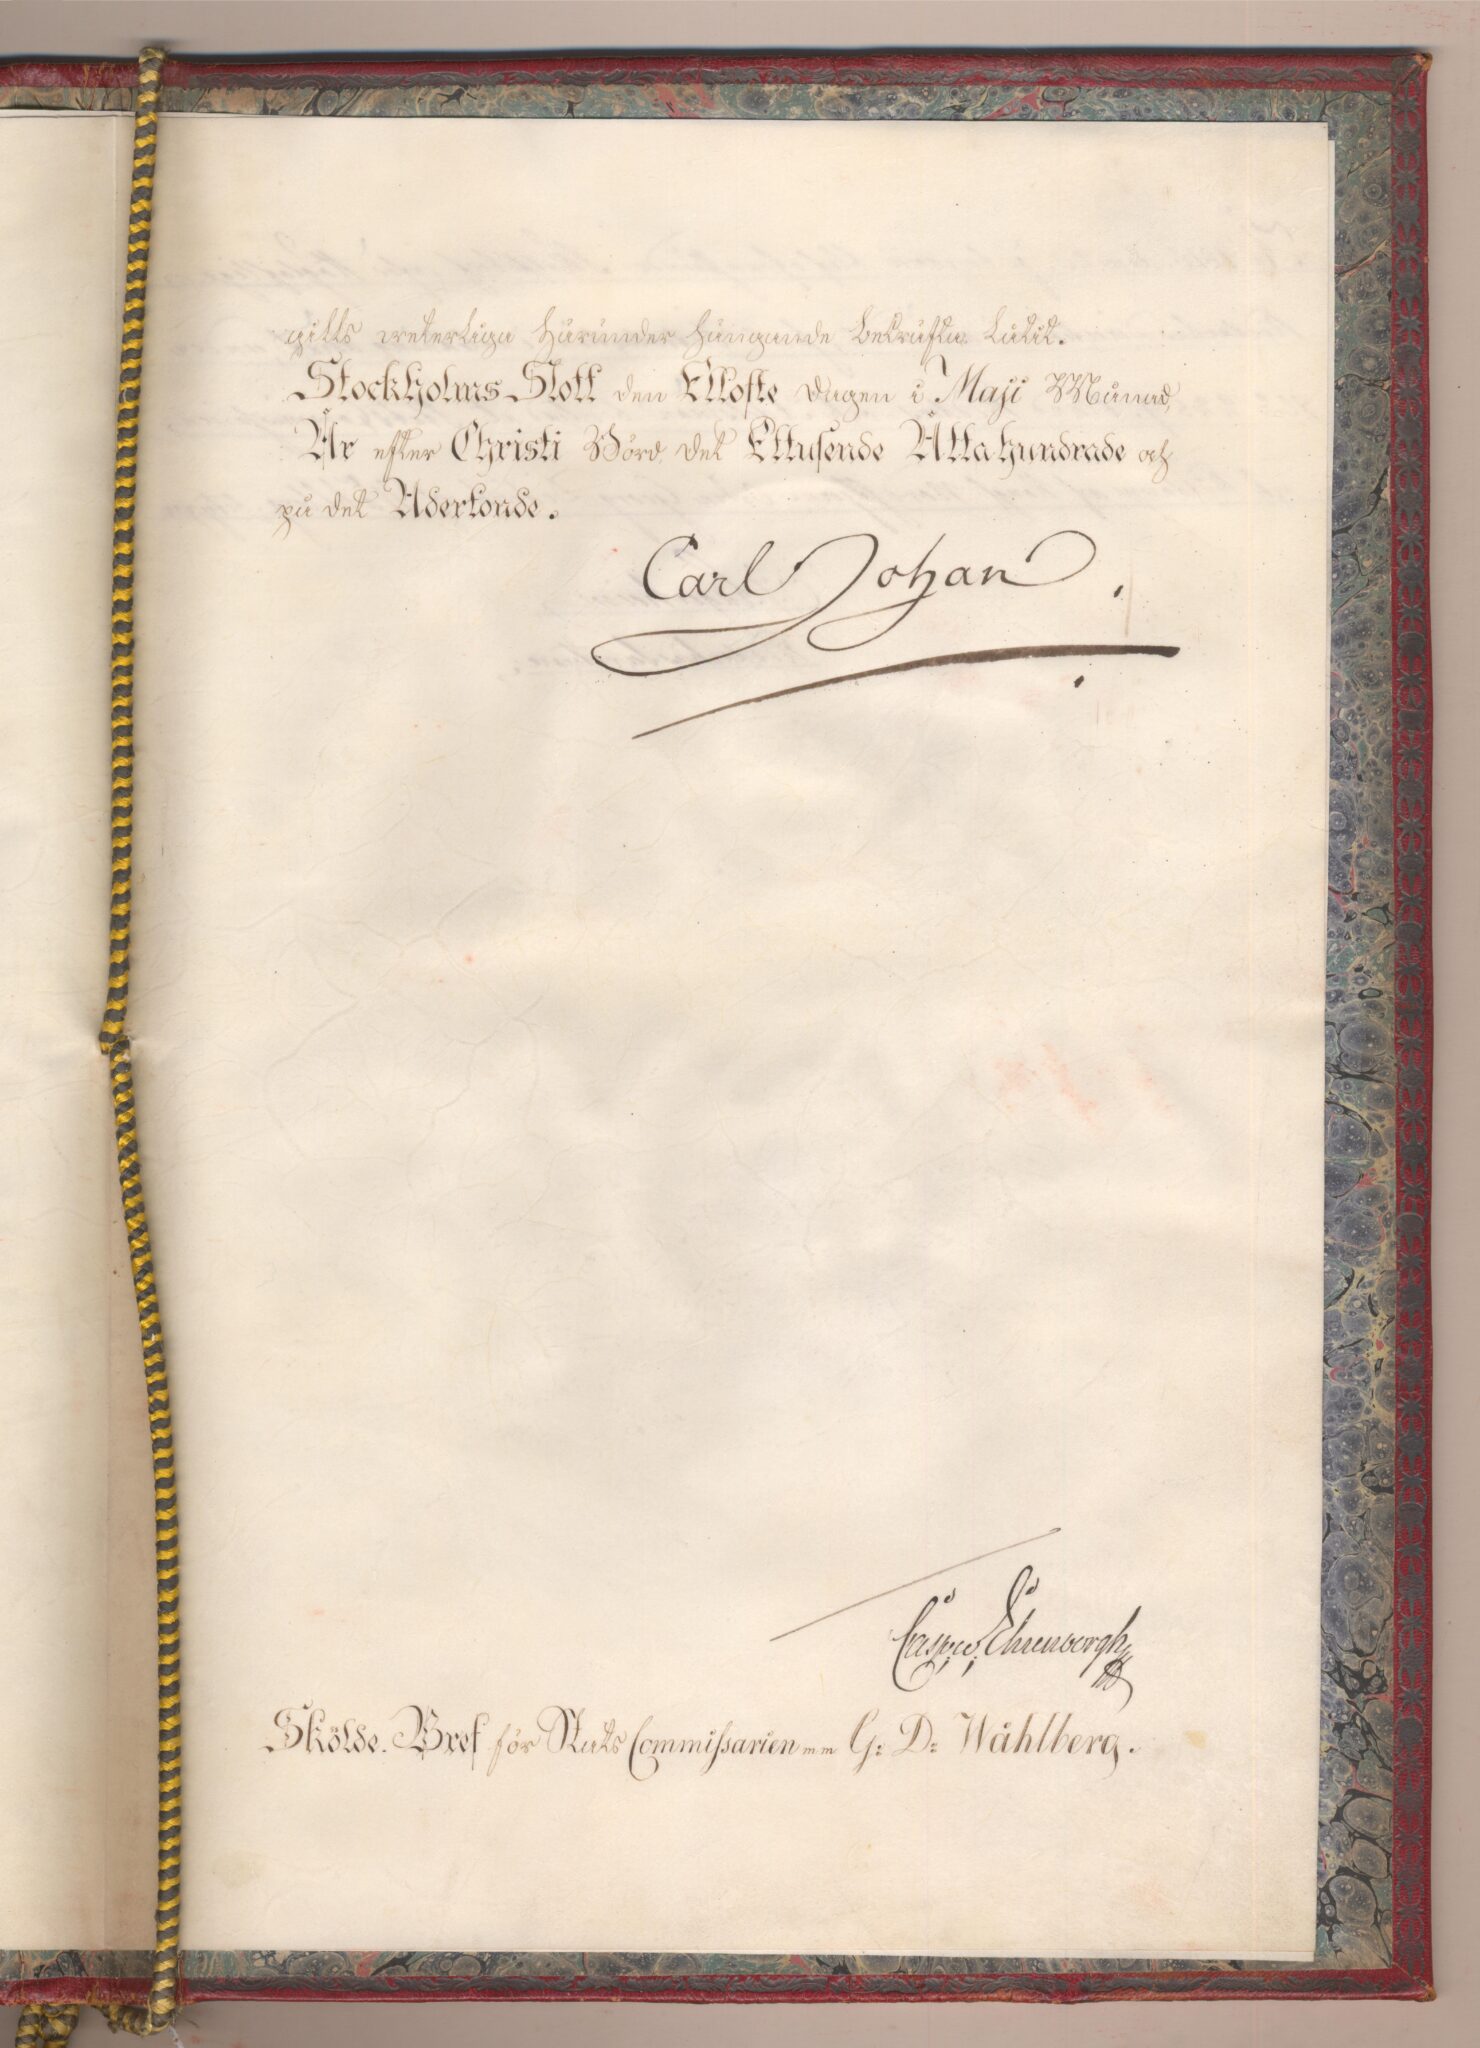 gills wetterliga härunder hängande bekräfta låtit.
Stockholms Slott den Ellofte dagen i Maji Månad,
År efter Christi Börd det Ettusende Åttahundrade och
på det Adertonde.
Carl Johan.
Casper Ehrenborgh
Skölde-Bref för Stats Commissarien m m G: D: Wåhlberg.